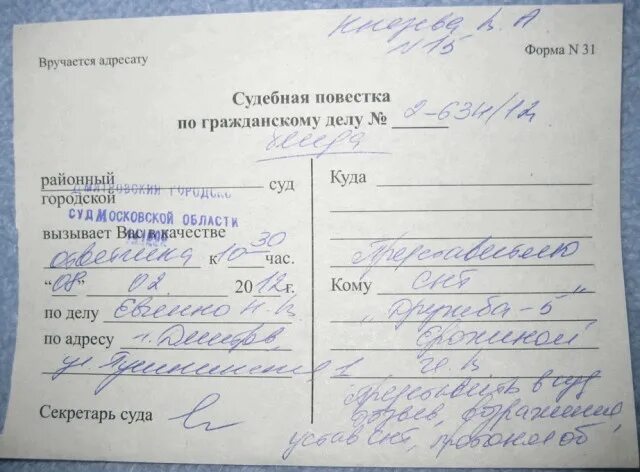 Князева В. А
N 15
Вручается адресату
Форма N 31
Судебная повестка
по гражданскому делу № 2-634/12
районный
городской суд
ДМИТРОВСКИЙ ГОРОДСКО
СУД МОСКОВСКОЙ ОБЛАСТИ
вызывает Вас в качестве
ответчика к 10 30 час.
"08" 02 2012 г.
по делу Евченко Н. В.
по адресу г. Дмитров,
ул. Пушкинская 1
Секретарь суда
Куда
Кому
Представителю
СНТ
"Дружба-5"
Ерохиной
Представить в суд
возражения,
устав СНТ, протокол об